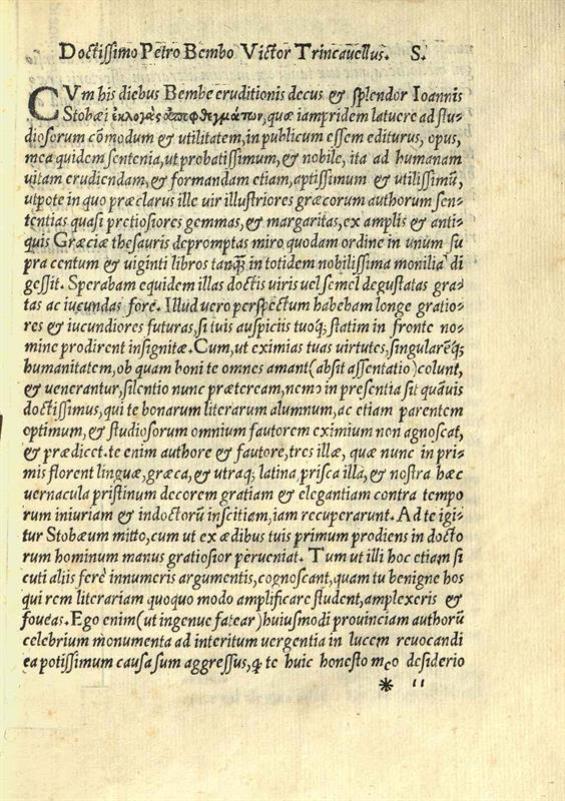 Doctissimo Petro Bembo Victor Trincauellus. S.
CVm his diebus Bembe eruditionis decus & splendor Ioannis
Stobæi ἐκλογὰς ἀποφθεγμάτων, quæ iampridem latuere ad stu-
diosorum cōmodum & utilitatem, in publicum essem editurus, opus,
mea quidem sentenia, ut probatissimum, & nobile, ita ad humanam
uitam erudiendam, & formandam etiam, aptissimum & utilissimū,
utpote in quo præclarus ille uir illustriores græcorum authorum sen-
tentias quasi pretiosiores gemmas, & margaritas, ex amplis & anti-
quis Græciæ thesauris depromptas miro quodam ordine in unum su
pra centum & uiginti libros tanq̃ in totidem nobilissima monilia di
gessit. Sperabam equidem illas doctis uiris uel semel degustatas gra-
tas ac iucundas fore. Illud uero perspectum habebam longe gratio-
res & iucundiores futuras, si tuis auspiciis tuoq; statim in fronte no-
mine prodirent insignitæ. Cum, ut eximias tuas uirtutes, singularēq;
humanitatem, ob quam boni te omnes amant (absit assentatio) colunt,
& uenerantur, silentio nunc præteream, nemo in presentia sit quāuis
doctissimus, qui te bonarum literarum alumnum, ac etiam parentem
optimum, & studiosorum omnium fautorem eximium non agnoscat,
& prædicet. te enim authore & fautore, tres illæ, quæ nunc in pri-
mis florent linguæ, græca, & utraq; latina prisca illa, & nostra hæc
uernacula pristinum decorem gratiam & elegantiam contra tempo
rum iniuriam & indoctorū inscitiam, iam recuperarunt. Ad te igi-
tur Stobæum mitto, cum ut ex ædibus tuis primum prodiens in docto
rum hominum manus gratiosior perueniat. Tum ut illi hoc etiam si
cuti aliis ferè innumeris argumentis, cognoscant, quam tu benigne hos
qui rem literariam quoquo modo amplificare student, amplexeris &
foueas. Ego enim (ut ingenue fatear) huiusmodi prouinciam authorū
celebrium monumenta ad interitum uergentia in lucem reuocandi
ea potissimum causa sum aggressus, ꝙ te huic honesto meo desiderio
* ii